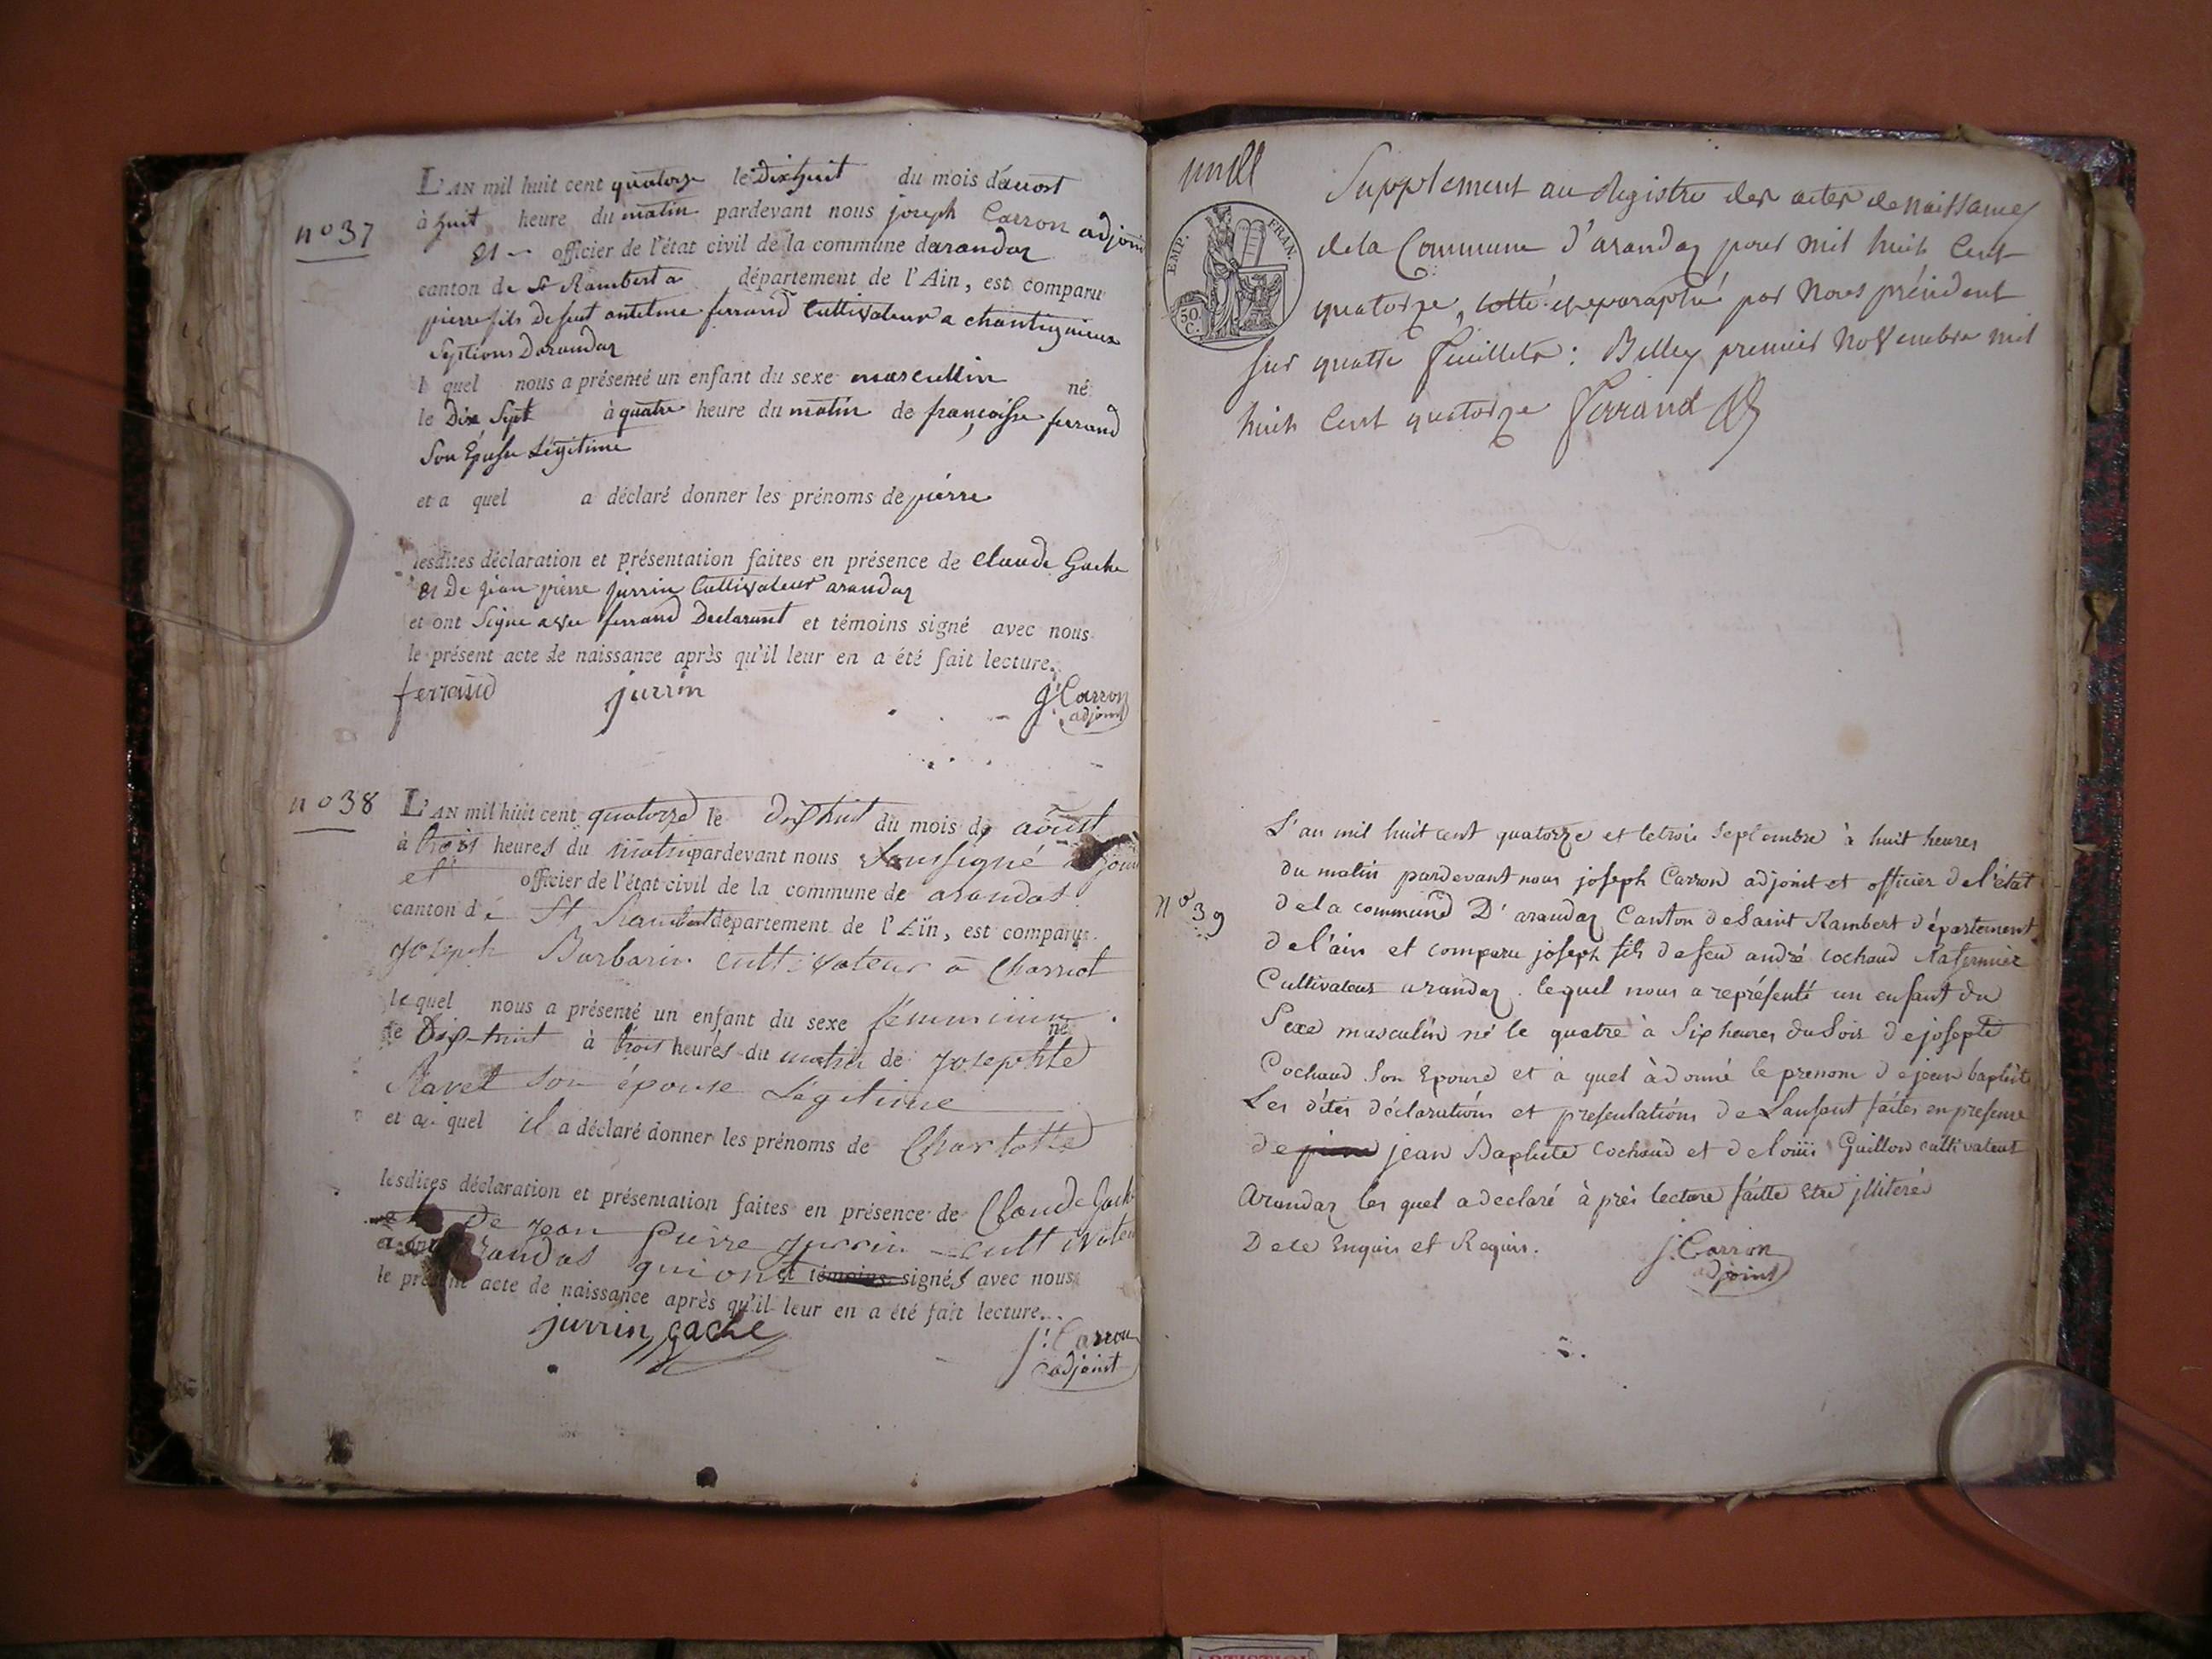 L'AN mil huit cent quatorze le Dixhuit du mois d'auost
à huit heure du matin pardevant nous joseph Carron adjoint
n° 37
Et officier de l'état civil de la commune darandaz
canton de St Rambert a département de l'Ain, est comparu
pierre fils De feut antelme ferrand Cultivateur a
Darandaz
l quel nous a présenté un enfant du sexe mascullin né
le Dix Sept à quatre heure du matin de françoisse ferrand
Son Epusse Légitime
et a quel a déclaré donner les prénoms de pierre
lesdites déclaration et présentation faites en présence de Claude Gache
Et De jean pierre jurrin Cultivateur arandaz
et ont Signe avec ferrand Declarant et témoins signé avec nous
le présent acte de naissance après qu'il leur en a été fait lecture.
ferrand jurrin J. Carron
adjoint
n° 38
L'AN mil huit cent quatorze le Dixhuit du mois de aoûst
à trois heures du matin pardevant nous Soussigné adjoint
et officier de l'état civil de la commune de arandas
canton de St Rambert département de l'Ain, est comparu
Joseph Barbarin cultivateur à Charriot
le quel nous a présenté un enfant du sexe féminin né
le Dix-huit à trois heures du matin de Josephte
Ravet son épouse Légitime
et a quel il a déclaré donner les prénoms de Charlotte
lesdites déclaration et présentation faites en présence de Claude Gache
et De Jean Pierre Jurrin cultivateur
arandas qui ont et témoins signés avec nous
le présent acte de naissance après qu'il leur en a été fait lecture.
jurrin gache J. Carron
adjoint
Supplement au Registre des actes de naissances
EMP. FRAN.
50 C.
de la Commune d'arandaz pour mil huit Cent
quatorze, cotté et paraphé par Nous président
sur quatre feuillets: Belley premier Novembre mil
huit Cent quatorze Ferrand
L'an mil huit cent quatorze et le trois Septembre à huit heures
du matin pardevant nous joseph Carron adjoint et officier de l'état
n° 39
de la commune D'arandaz Canton de Saint Rambert département
de l'ain et comparu joseph fils de feu andré cochaud
Cultivateur arandaz. lequel nous a représenté un enfant du
Sexe masculin né le quatre à Six heures du Soir de josepte
Cochaud Son Epouse et à quel à donné le prenom de jean baptiste
Les dites déclarations et presentations de Lanfant faites en presence
de pierre jean Baptiste Cochaud et de louis Guillon cultivateur
Arandaz les quel a declaré à près lecture faitte Etre jlliteré
De ce Enquis et Requis. J. Carron
adjoint